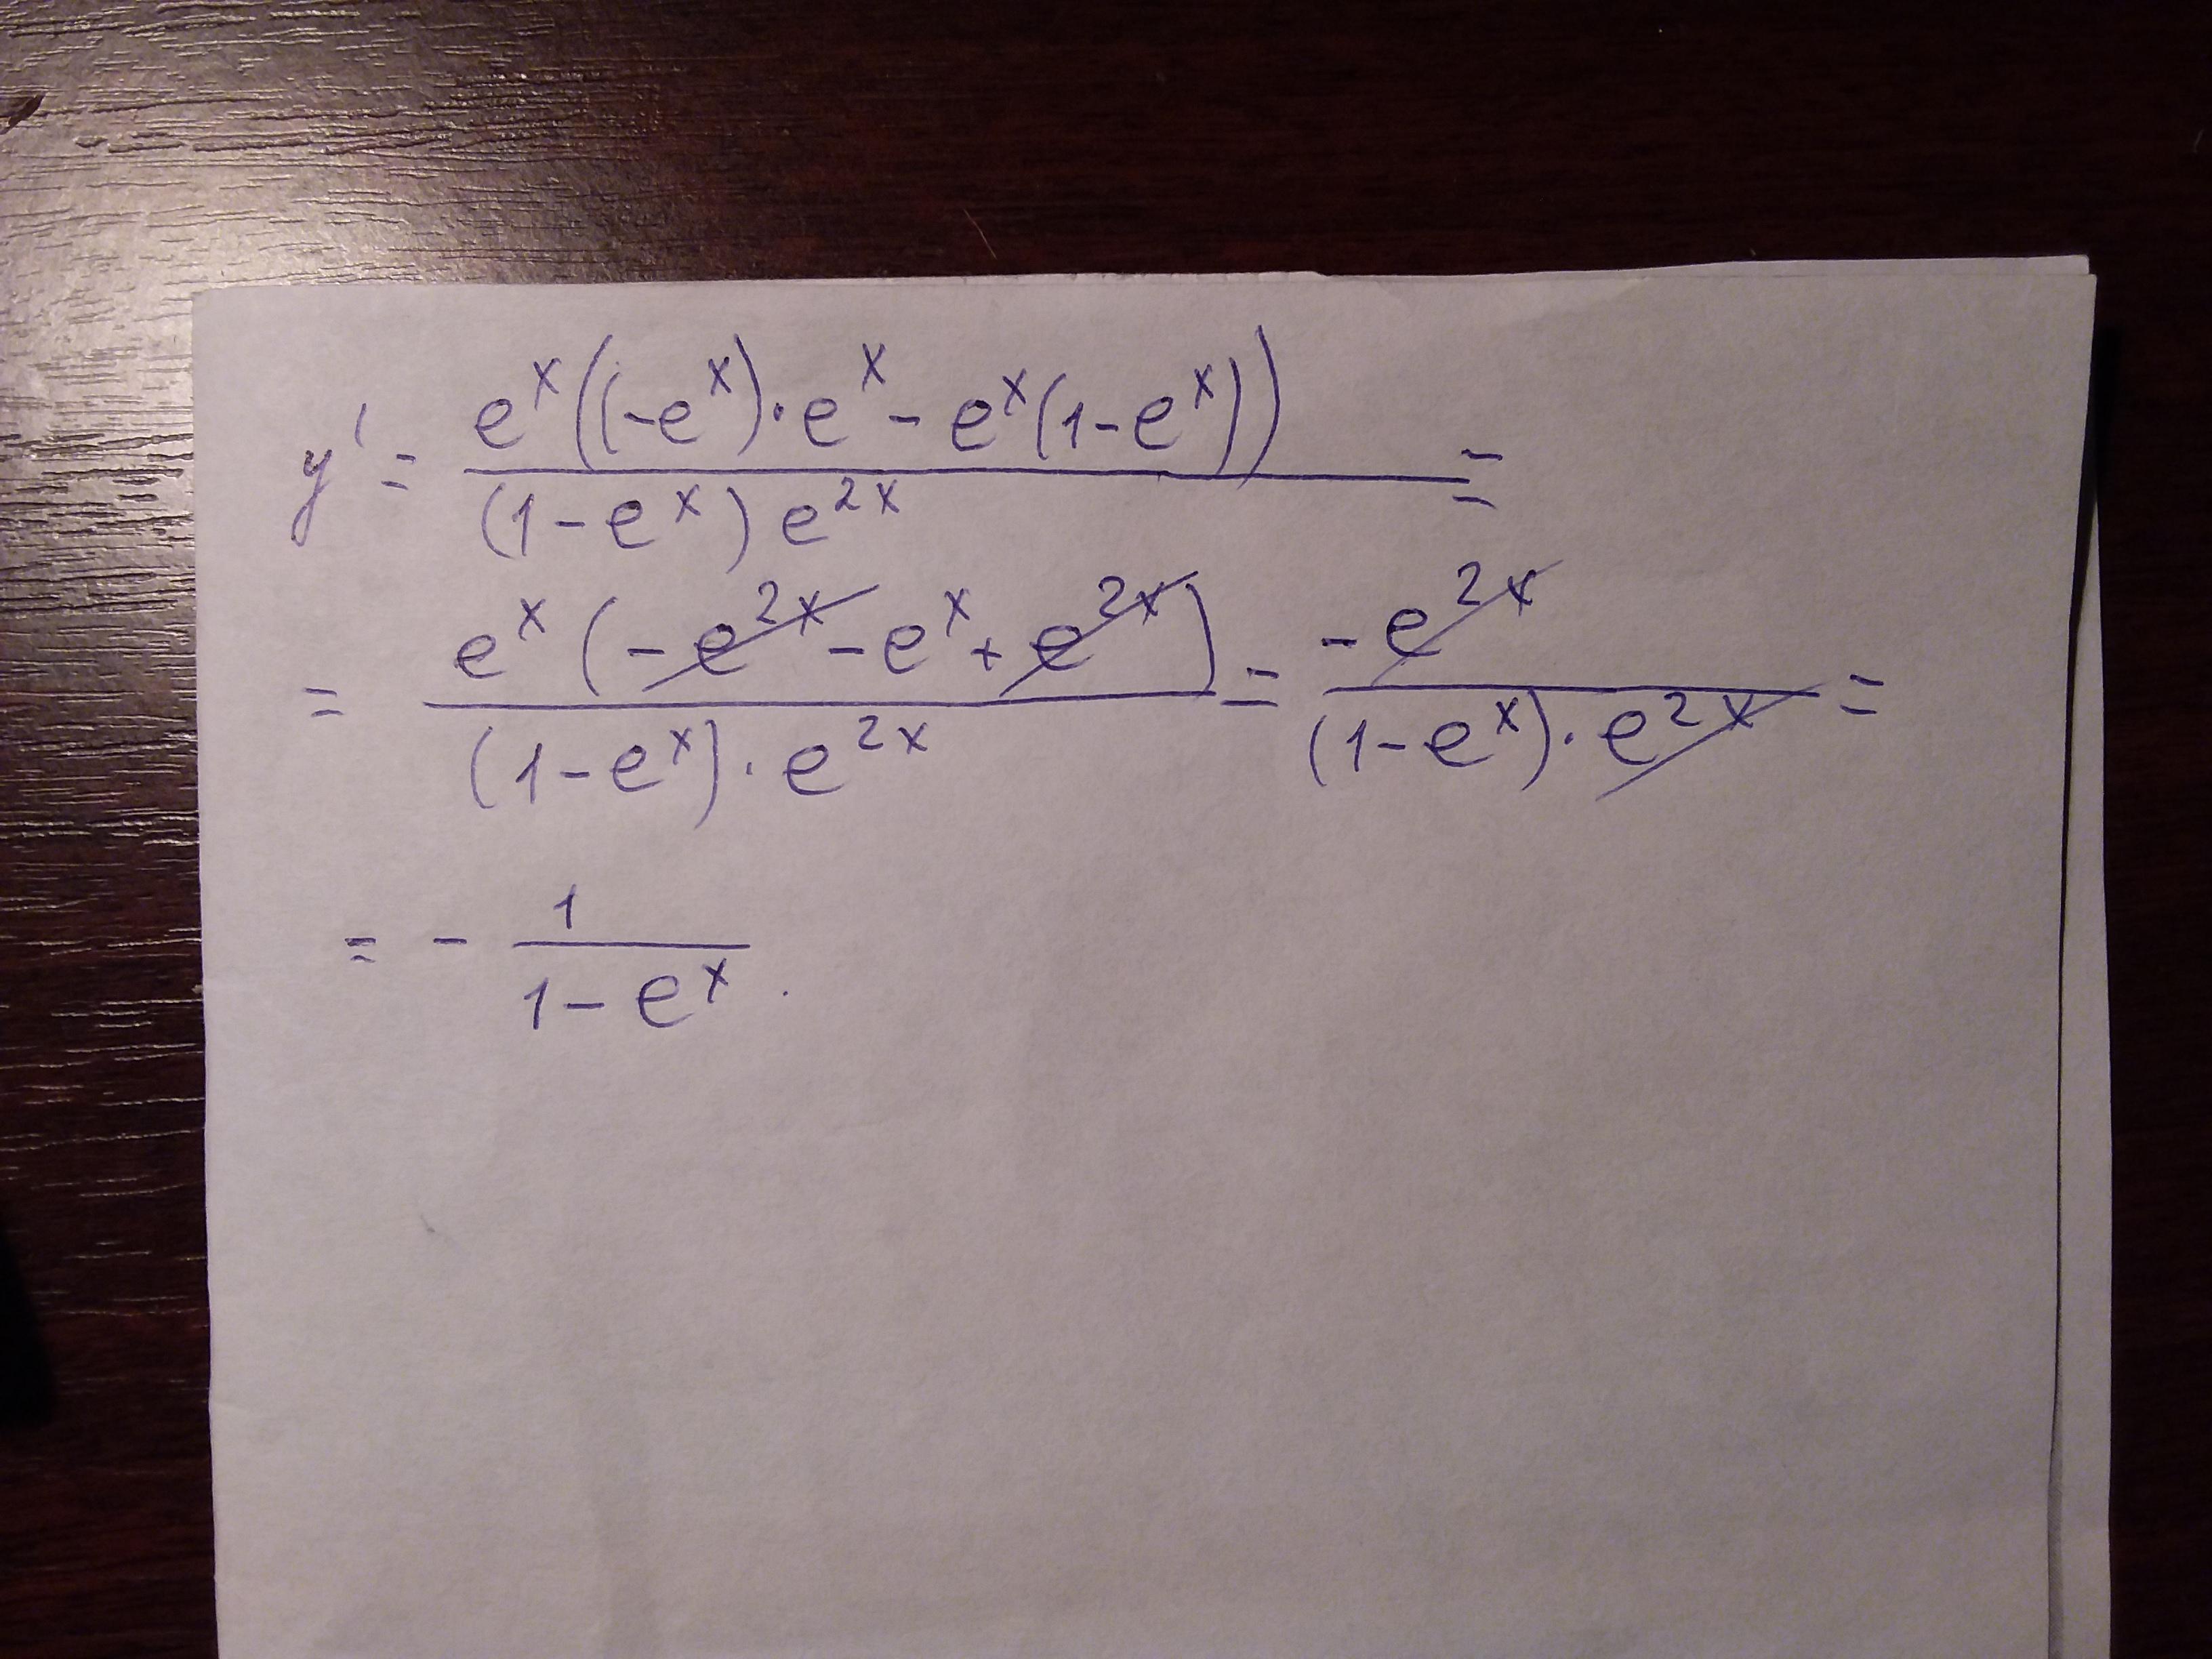 y' = \frac{e^x((-e^x) \cdot e^x - e^x(1-e^x))}{(1-e^x) e^{2x}} =
= \frac{e^x(-e^{2x} - e^x + e^{2x})}{(1-e^x) \cdot e^{2x}} = \frac{-e^{2x}}{(1-e^x) \cdot e^{2x}} =
= - \frac{1}{1-e^x}.